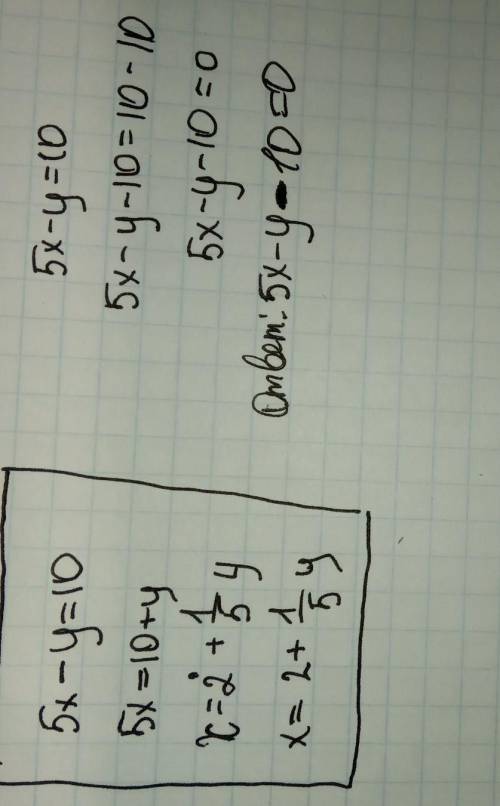 5x-y=10
5x=10+y
x=2+1/5 y
x=2+1/5 y
5x-y=10
5x-y-10=10-10
5x-y-10=0
Ответ: 5x-y-10=0